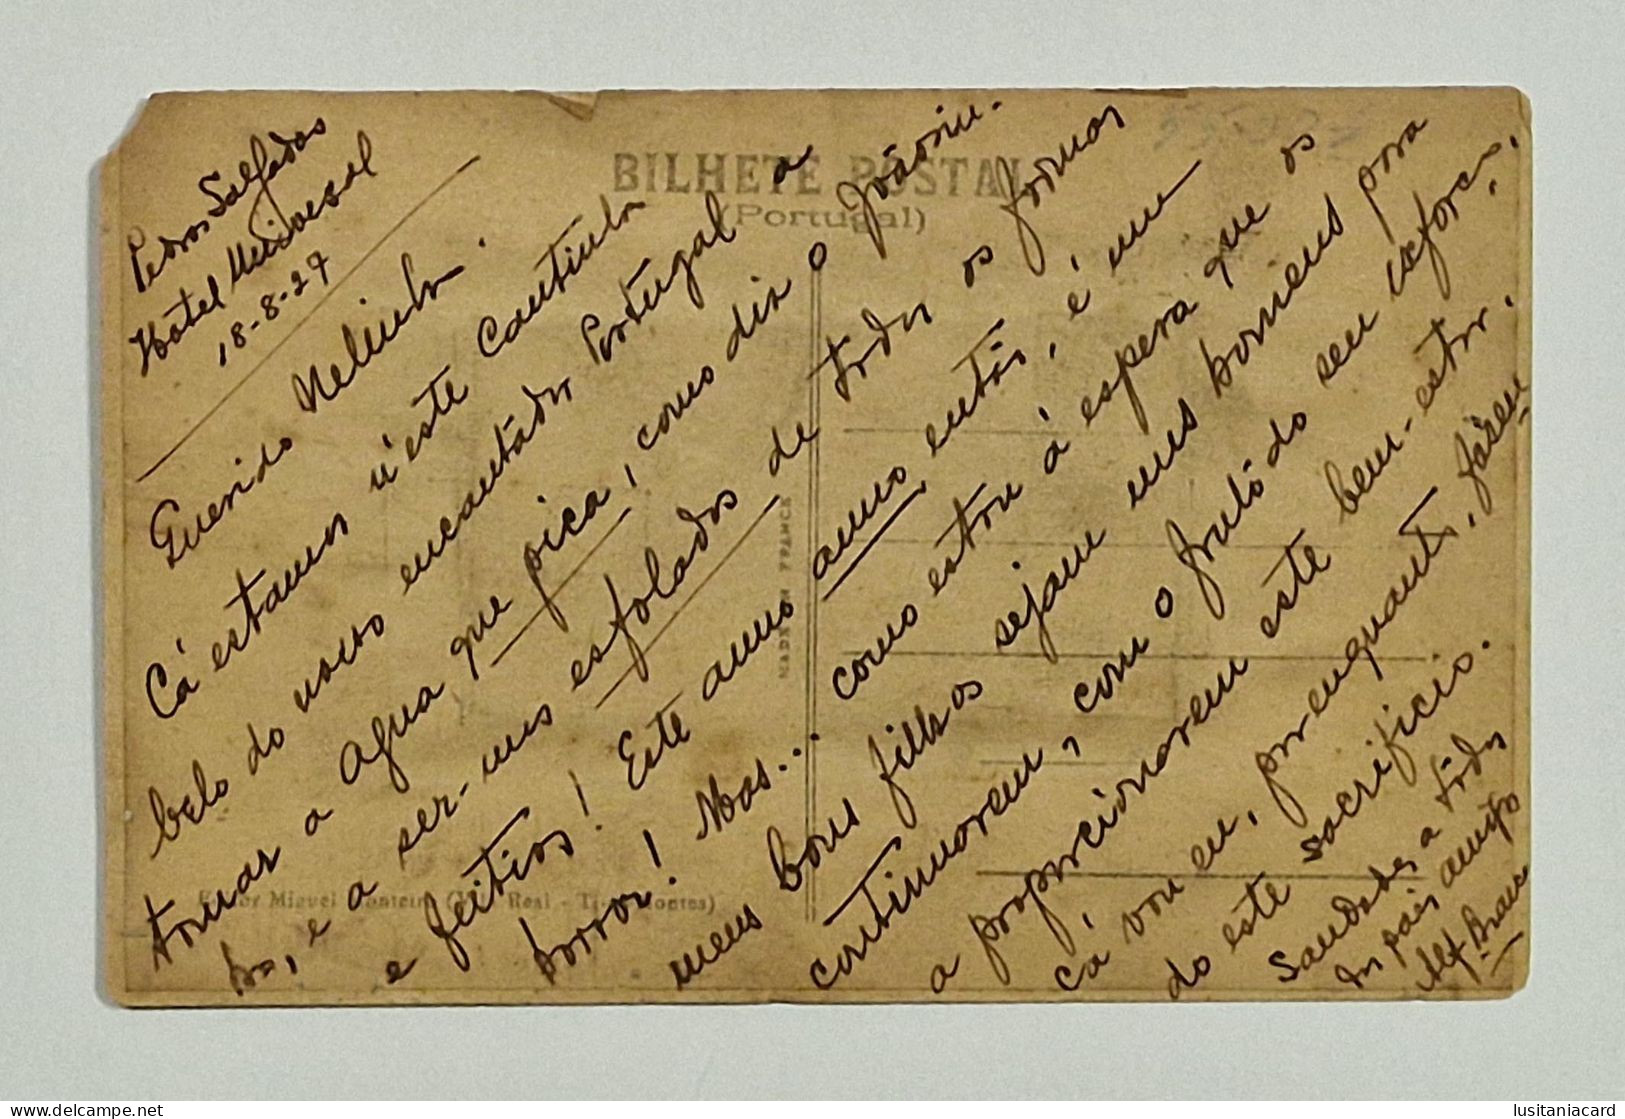 BILHETE POSTAL
(Portugal)
Pedras Salgadas
Hotel Universal
18-8-27
Querido Nelinho.
Cá estamos n'este cantinho
belo do nosso encantador Portugal a
tomar a agua que pica, como diz o Joãosin-
ho, e a ser-mos esfolados de todos os formas
e feitios! Este anno anno então, é um
horror! Mas... como estou á espera que os
meus bons filhos sejam uns homens para
continuarem, com o fruto do seu esforço,
a proporcionarem este bem-estar.
Cá vou eu, por enquanto, fazen
do este sacrificio.
Saudades a todos
do pai amigo
Alf.
MADE IN FRANCE
Editor Miguel Monteiro (Vila Real - Traz-os-Montes)
lusitaniacard
delcampe.net